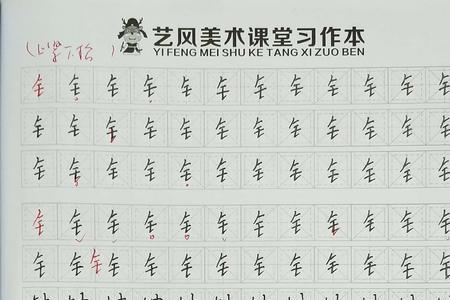 艺风美术课堂习作本
YI FENG MEI SHU KE TANG XI ZUO BEN
钅钅钅钅钅钅钅钅钅钅钅钅
钅钅钅钅钅钅钅钅钅钅钅钅
钅钅钅钅钅钅钅钅钅钅钅钅
钅钅钅钅钅钅钅钅钅钅钅钅
钅钅钅钅钅钅钅钅钅钅钅钅钅